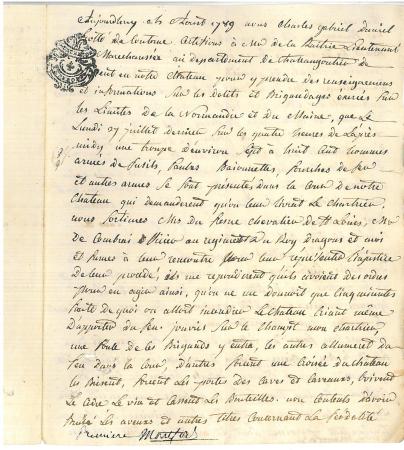 Aujourdhuy 15 Aoust 1789 nous Charles Gabriel
de Couterne Certifions à Mr de la Lieutenant
Marechaussée au departement de chateaugontier
en notre Chateau pour y prendre des renseignemens
et informations sur les delits et Brigandages exercés sur
les Limites de la Normandie et du Maine, que Le
Lundi 27 juillet dernier sur les quatre heures de Lapres
midy une troupe denviron sept à huit cent hommes
armés de fusils, Baionnettes, fourches de feu
et autres armes se sont présentés dans la Cour de notre
Chateau qui demanderent qu'on leur livrat Le Chartrier
nous sortimes Mrs du chevalier de St Louis, Mr
de Combrai au regiment du Roy Dragons et moi
et fumes à leur rencontre pour leur representer l'injustice
de leur procedé, ils me repondirent qu'ils avoient des ordres
pour en agir ainsi, qu'on ne me donnoit que cinq minutes
faute de quoi on alloit incendier Le Chateau criant même
d'apporter du feu. j'ouvris sur le champ mon chartrier,
une foule de ces Brigands y entra, les autres allumerent du
feu dans la Cour, d'autres une croisée du chateau
les portes des caves et caveaux, boivent
Le Cidre Le vin et Cassent les Bouteilles. non contents d'avoir
Brulé les aveux et autres titres Concernant La féodalité
premiere Montfort